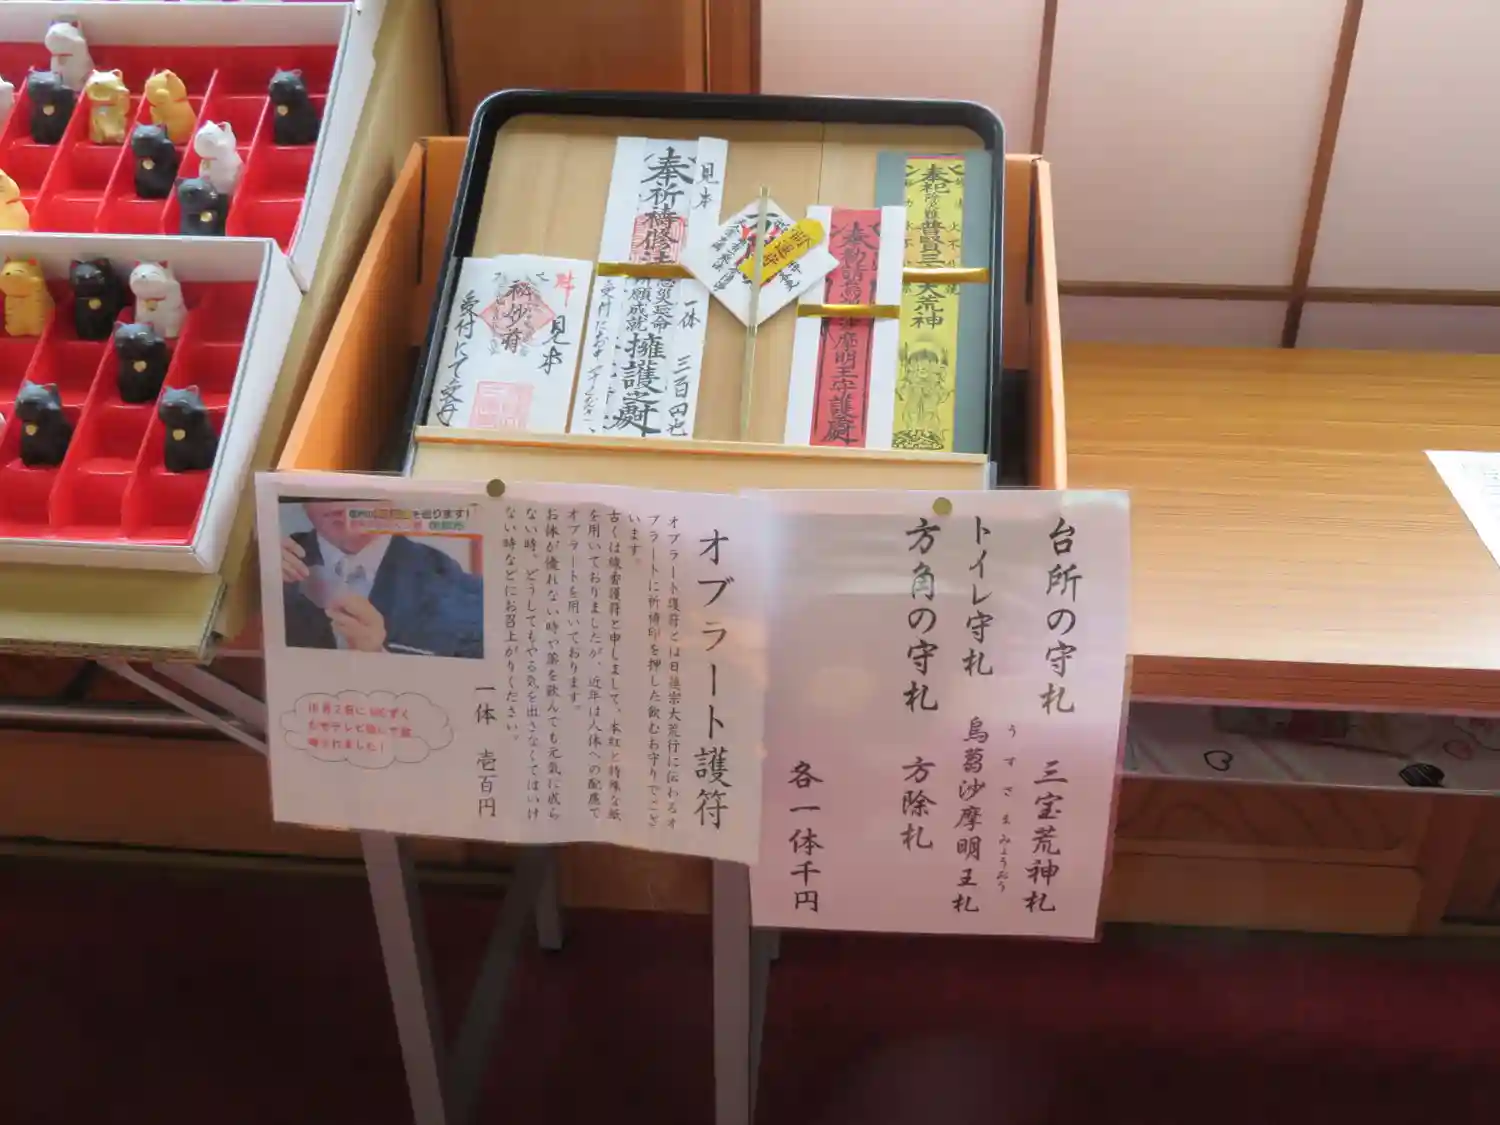 見本
奉
祈祷修法
息災延命
祈願成就
擁護之尉
一体 三百円也
見本
受付にて
奉勧請烏芻沙摩明王守護尉
普賢三宝大荒神
台所の守札 三宝荒神札
トイレ守札 烏蒭沙摩明王札
うすさまみょうおう
方角の守札 方除札
各一体千円
オブラート護符
オブラート護符とは日蓮宗大荒行に伝わるオ
ブラートに祈祷印を押した飲むお守りでござ
います。
古くは線香護符と申しまして、本紅と特殊な紙
を用いておりましたが、近年は人体への配慮で
オブラートを用いております。
お体が優れない時や薬を飲んでも元気に成ら
ない時、どうしてもやる気を出さなくてはいけ
ない時などにお召上がりください。
一体 壱百円